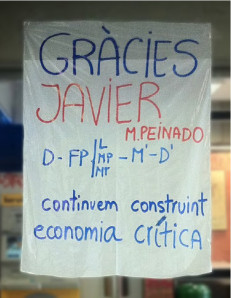 GRÀCIES
JAVIER
M.PEINADO
D - FP L MP MT - M' - D'
continuem construint
economia CRÍTICA